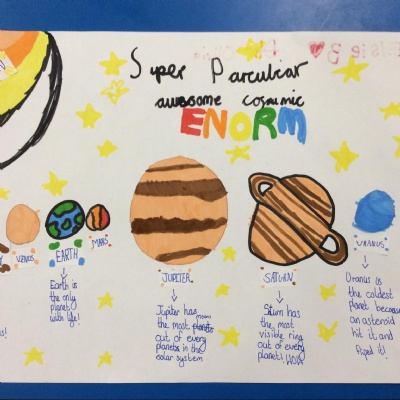 Super Parculiar
awesome cosmic
ENORM
VENUS
EARTH
MARS
JUPITER
SATURN
URANUS
Earth is
the only
planet
with life!
Jupiter has
the most moons
out of every
planets in the
solar system
has
the most
visible ring
out of every
planet! WOW
Uranus is
the coldest
planet because
an asteroid
hit it and
fliped it!